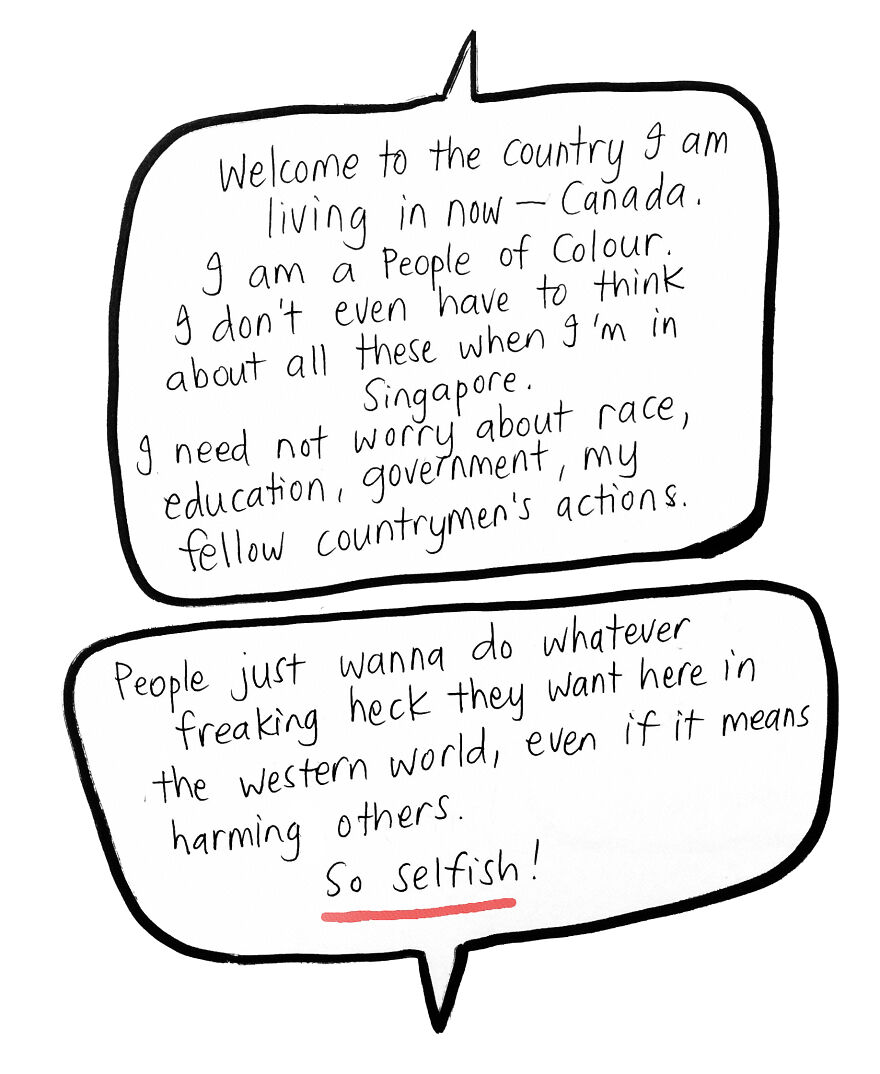 Welcome to the country I am
living in now — Canada.
I am a People of Colour.
I don't even have to think
about all these when I'm in
Singapore.
I need not worry about race,
education, government, my
fellow countrymen's actions.
People just wanna do whatever
freaking heck they want here in
the western world, even if it means
harming others.
So selfish!